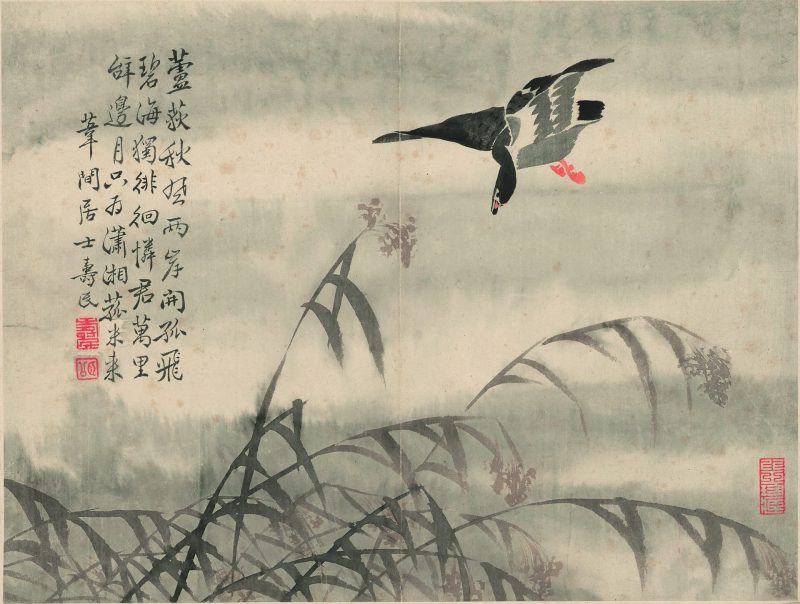 蘆荻秋兩岸開孤飛
碧海獨徘徊憐君萬里
辝邊月只為瀟湘菰米来
葦間居士壽民